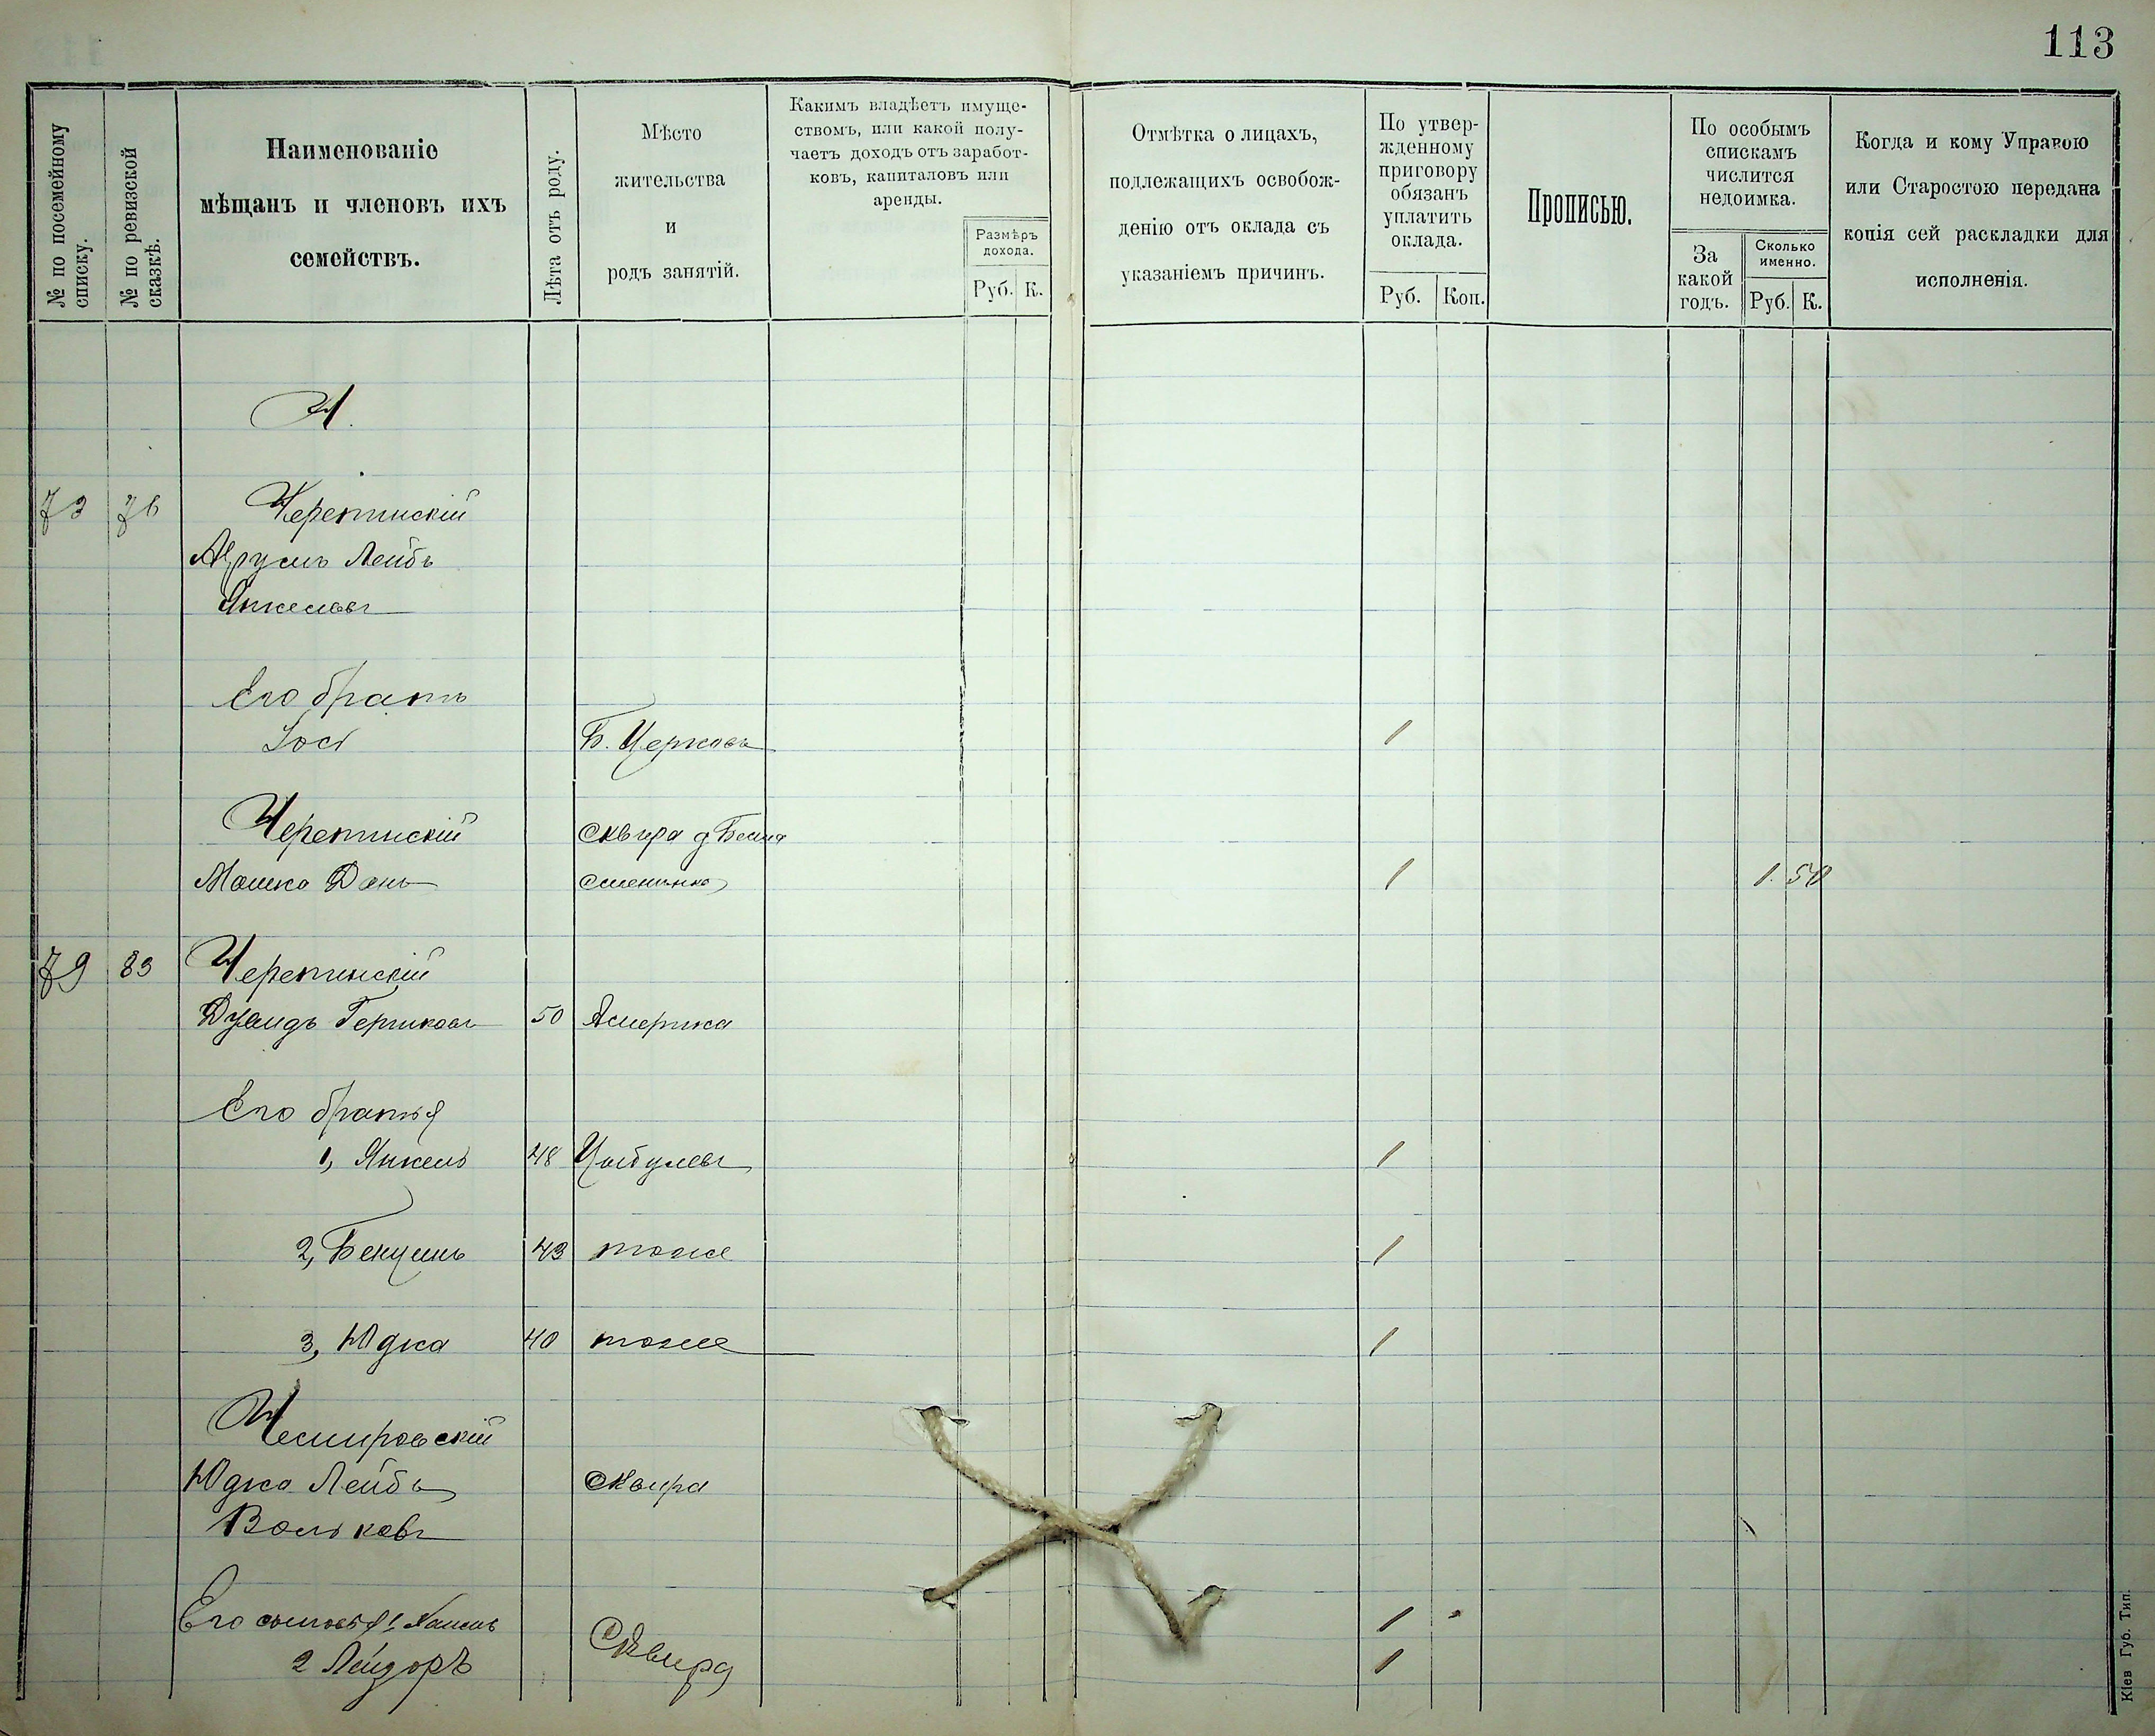 113
№ по посемейному списку.
№ по ревизской сказкѣ.
Наименованіе
мѣщанъ и членовъ ихъ
семействъ.
Лѣта отъ роду.
Мѣсто
жительства
и
родъ занятій.
Какимъ владѣетъ имуще-
ствомъ, или какой полу-
чаетъ доходъ отъ заработ-
ковъ, капиталовъ или
аренды.
Размѣръ
дохода.
Руб. К.
Отмѣтка о лицахъ,
подлежащихъ освобож-
денію отъ оклада съ
указаніемъ причинъ.
По утвер-
жденному
приговору
обязанъ
уплатить
оклада.
Руб. Коп.
Прописью.
По особымъ
спискамъ
числится
недоимка.
За
какой
годъ.
Сколько
именно.
Руб. К.
Когда и кому Управою
или Старостою передана
копія сей раскладки для
исполненія.
Ч.
73 76 Черепинскій
Лейбъ
Янкелевъ
Его братъ
Іось Б. Церковь 1
Черепинскій Сквира
Мошко Донъ 1 1. 50
79 83 Черепинскій
Дувидъ Гершковъ 50 Америка
Его братья
1, Янкель 48 Цыбулевъ 1
2, Бенцинъ 43 тоже 1
3, Юдка 40 тоже 1
Чемировскій
Юдко Лейбъ Сквира
Вольковъ
Его сыновья 1, Хаимъ 1
2 Лейзоръ Сквира 1
Кіев Губ. Тип.